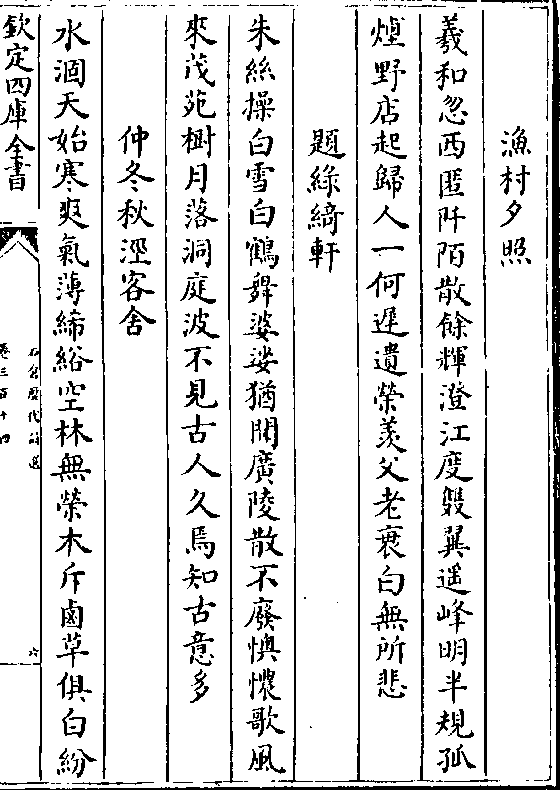 漁村夕照
羲和忽西匿阡陌散餘輝澄江度毿翼遥峰明半規孤
煙野店起歸人一何遲遺榮羡父老衰白無所悲
題綠綺軒
朱絲操白雪白鶴舞婆娑猶聞廣陵散不廢懊憹歌風
來茂苑樹月落洞庭波不見古人久焉知古意多
仲冬秋涇客舍
水涸天始寒爽氣薄絺綌空林無榮木斥鹵草俱白紛
欽定四庫全書
石倉歴代詩選
卷三百十四
六